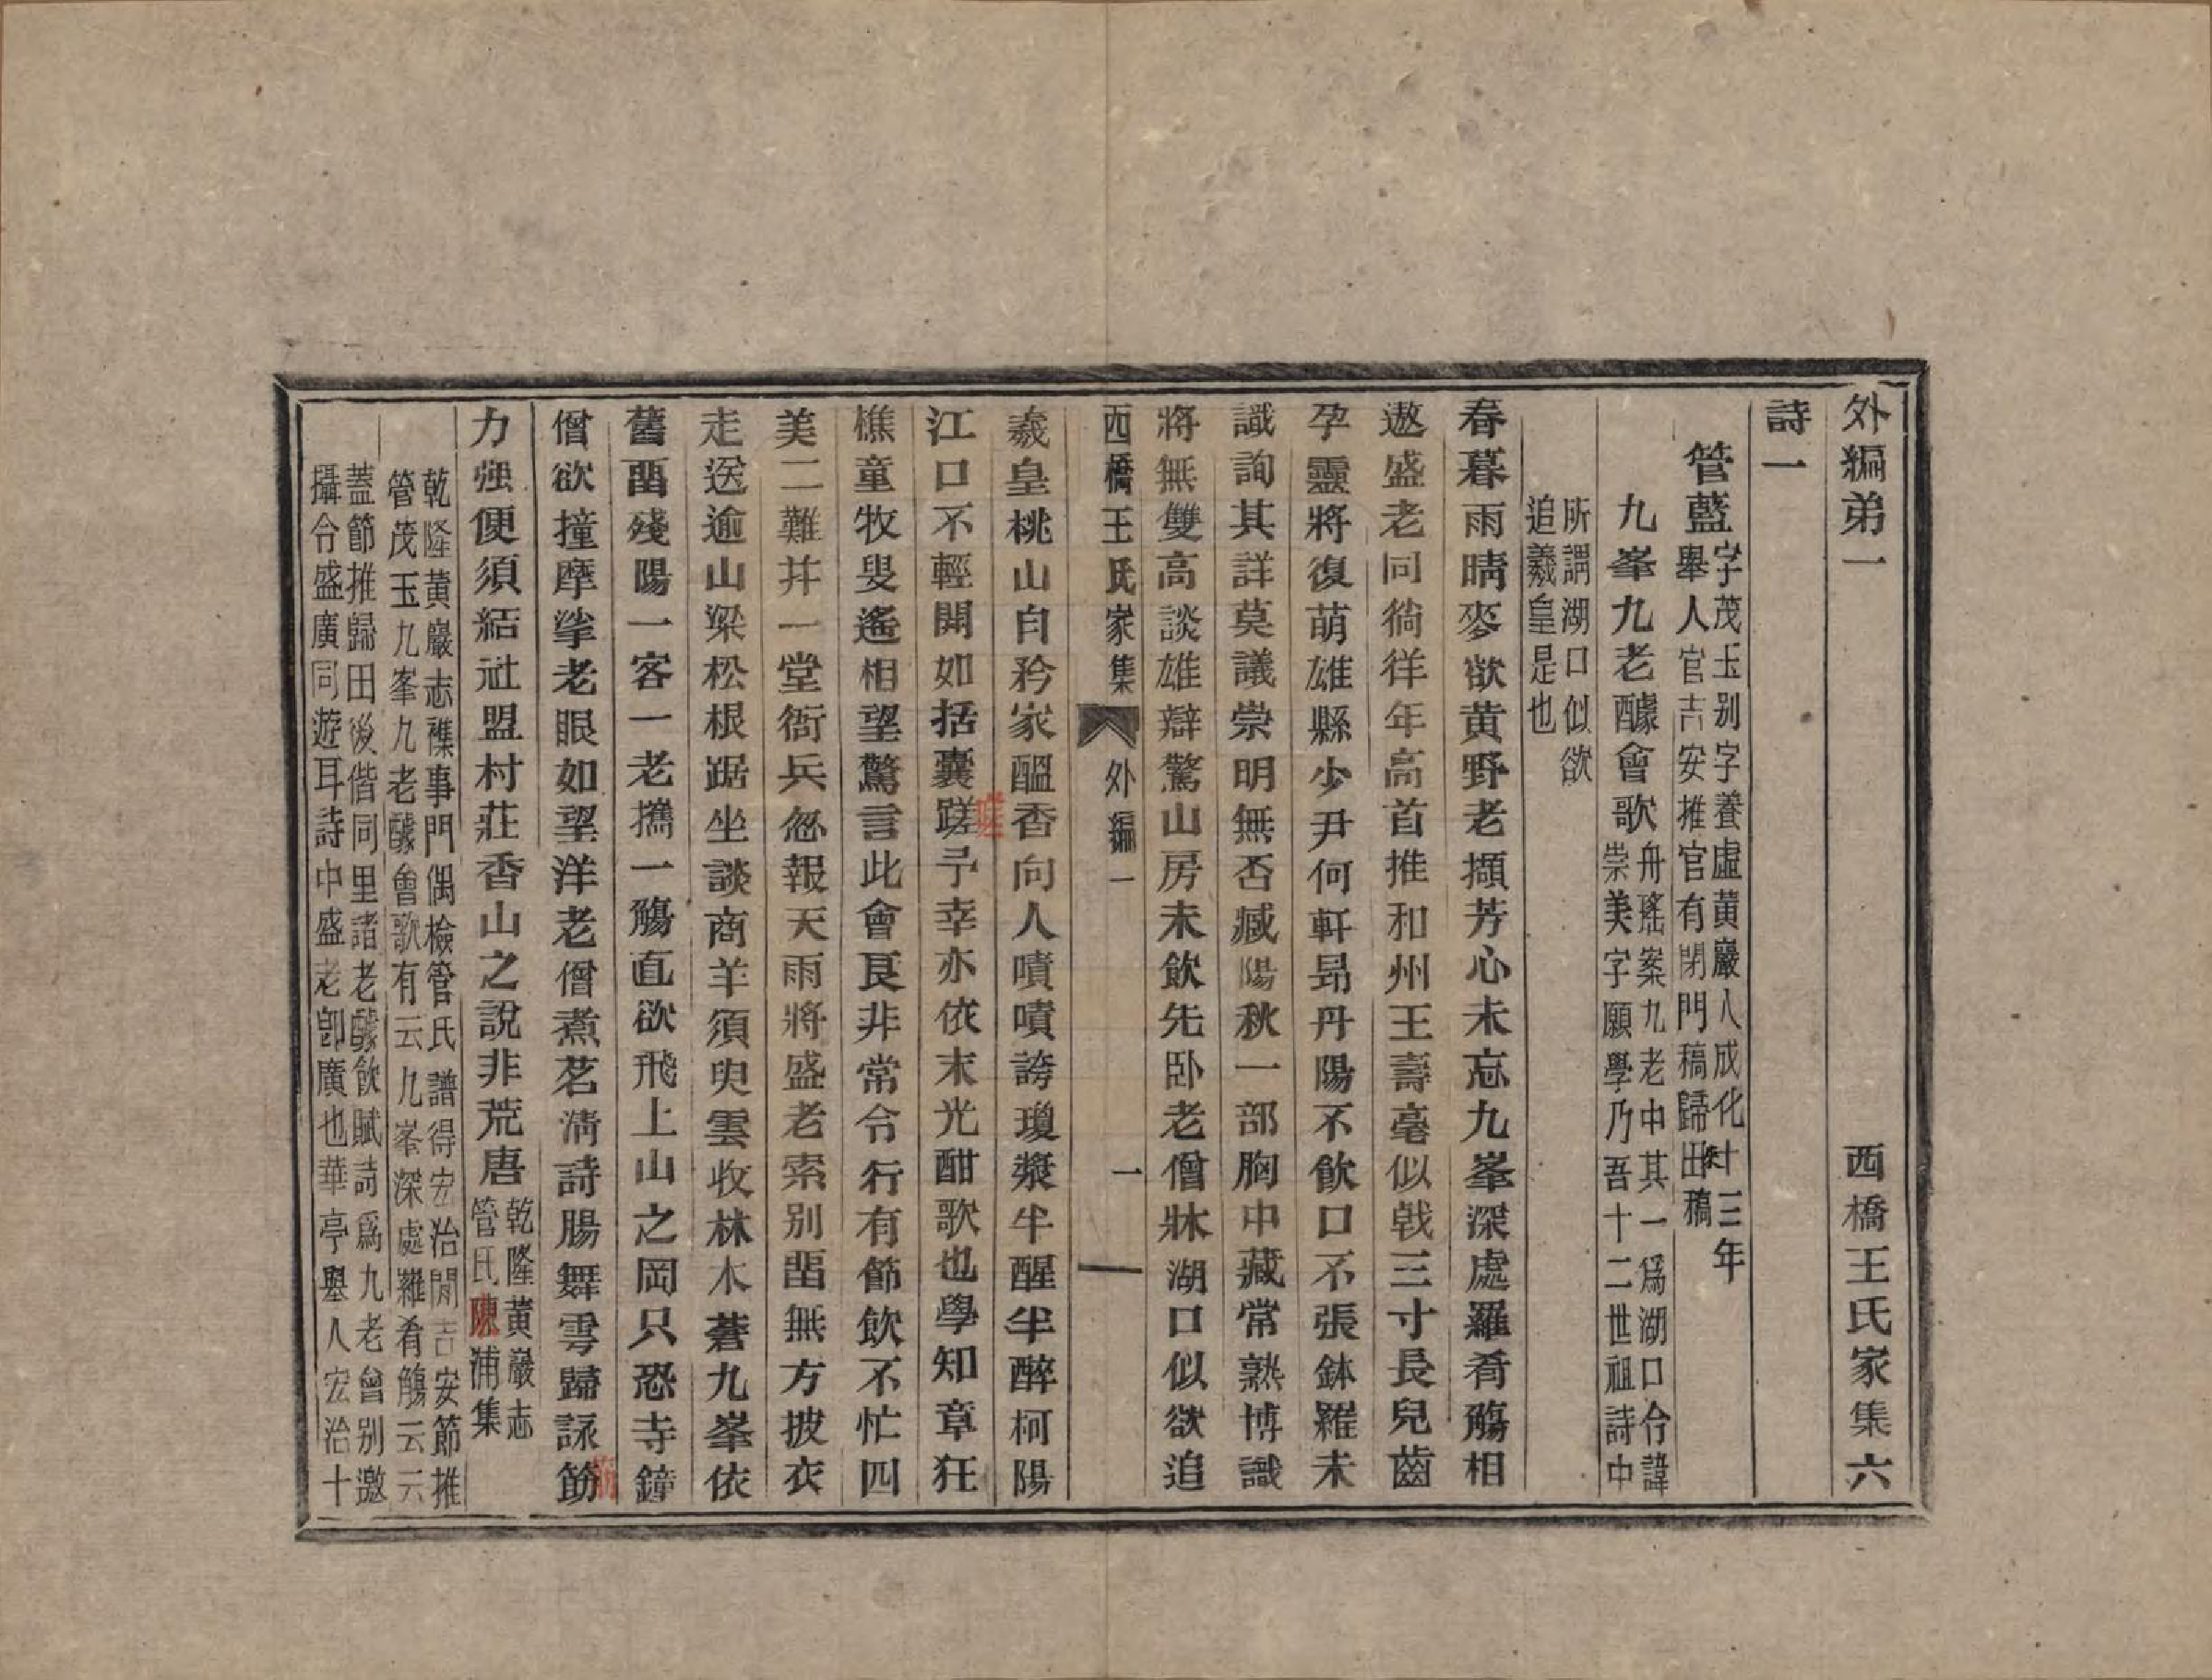 外編弟一　西橋王氏家集六
詩一
管藍
字茂玉别字養虛黄巖人成化十三年
舉人官吉安推官有閉門稿歸田稿
九峯九老醵會歌
舟瑤案九老中其一爲湖口令諱
崇美字願學乃吾十二世祖詩中
所謂湖口似欲
追羲皇是也
春暮雨晴麥欲黄野老擷芳心未忘九峯深處羅肴觴相
遨盛老同徜徉年高首推和州王壽毫似戟三寸長兒齒
孕靈將復萌雄縣少尹何軒昻丹陽不飮口不張鉢羅未
識詢其詳莫議崇明無否臧陽秋一部胸中藏常熟博識
將無雙高談雄辯驚山房未飮先卧老僧牀湖口似欲追
西橋王氏家集　外編一　一
羲皇桃山自矜家醞香向人嘖嘖誇瓊漿半醒半醉柯陽
江口不輕開如括囊蹉予幸亦依末光酣歌也學知章狂
嗟
樵童牧叟遙相望驚言此會良非常令行有節飮不忙四
美二難幷一堂衙兵忽報天雨將盛老索别畱無方披衣
走送逾山梁松根踞坐談商羊須臾雲收林木蒼九峯依
舊畱殘陽一客一老攜一觴直欲飛上山之岡只恐寺鐘
僧欲撞摩挲老眼如望洋老僧煮茗淸詩腸舞雩歸詠筋
力强便須結社盟村莊香山之說非荒唐
乾隆黄巖志
管氏陳浦集
乾隆黄巖志襍事門偶檢管氏譜得宏治閒吉安節推
管茂玉九峯九老醵會歌有云九峯深處羅肴觴云云
蓋節推歸田後偕同里諸老醵飮賦詩爲九老會别邀
攝令盛廣同遊耳詩中盛老卽廣也華亭舉人宏治十